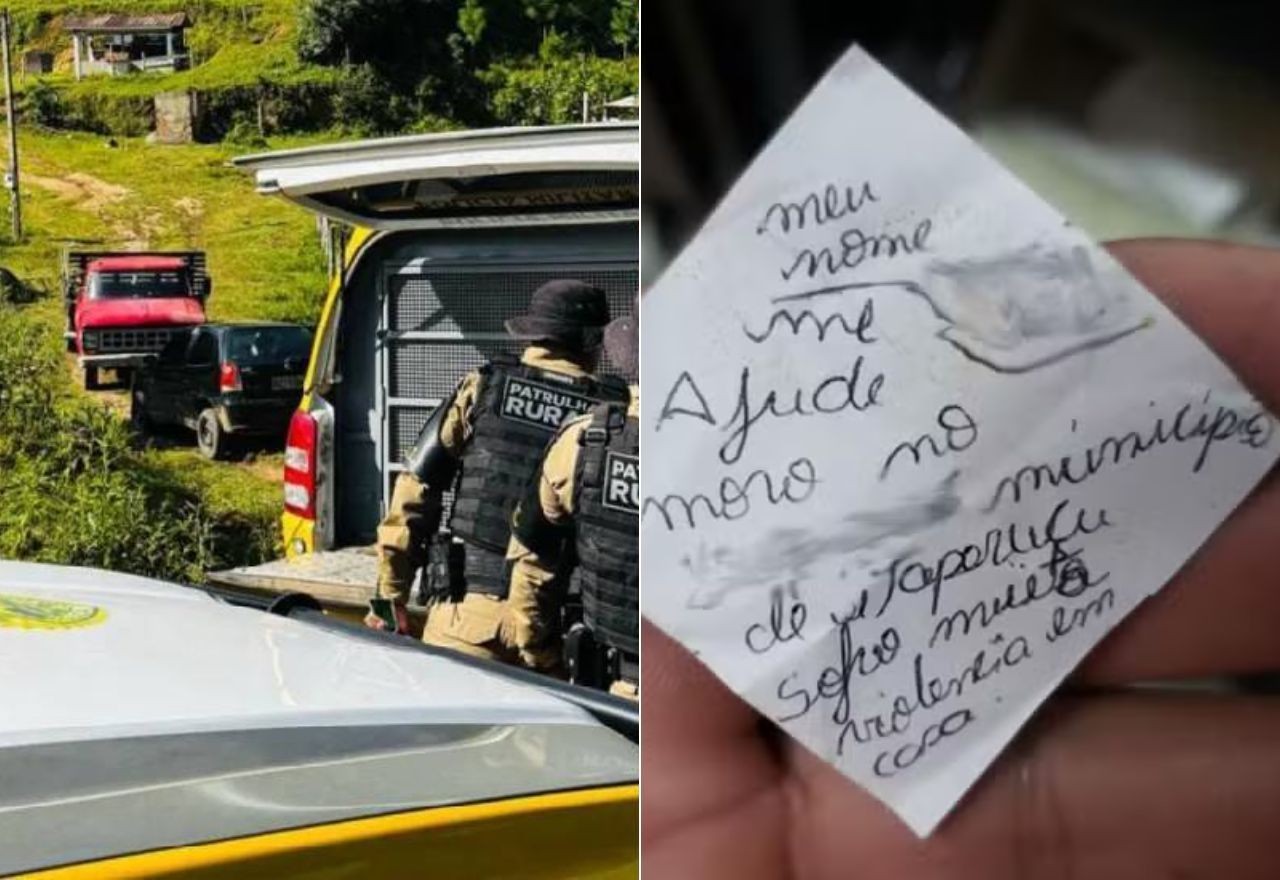 PATRULHA
RURAL
PA
RU
meu
nome
me
Ajude
moro no
municipio
de itaperuçu
sofro muito
violencia em
casa.